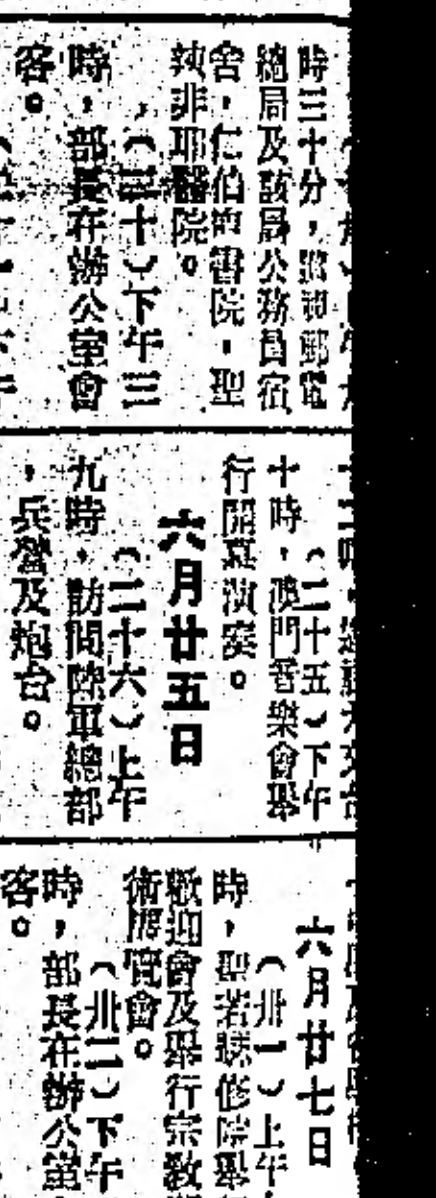 時三十分，
總局及該局公務員宿
舍，仁伯爵書院，聖
辣非耶醫院。
（三十）下午三
時，部長在辦公室會
客。
（二十五）下午
十時，澳門音樂會舉
行開幕演奏。
六月廿五日
（二十六）上午
九時，訪問陸軍總部
，兵營及炮台。
六月廿七日
（卅一）上午
時，聖若瑟修院舉行
歡迎會及舉行宗教
術展覽會。
（卅二）下午
時，部長在辦公室
客。